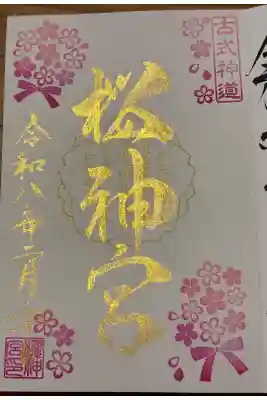 古式神道
桜神宮
令和八年二月